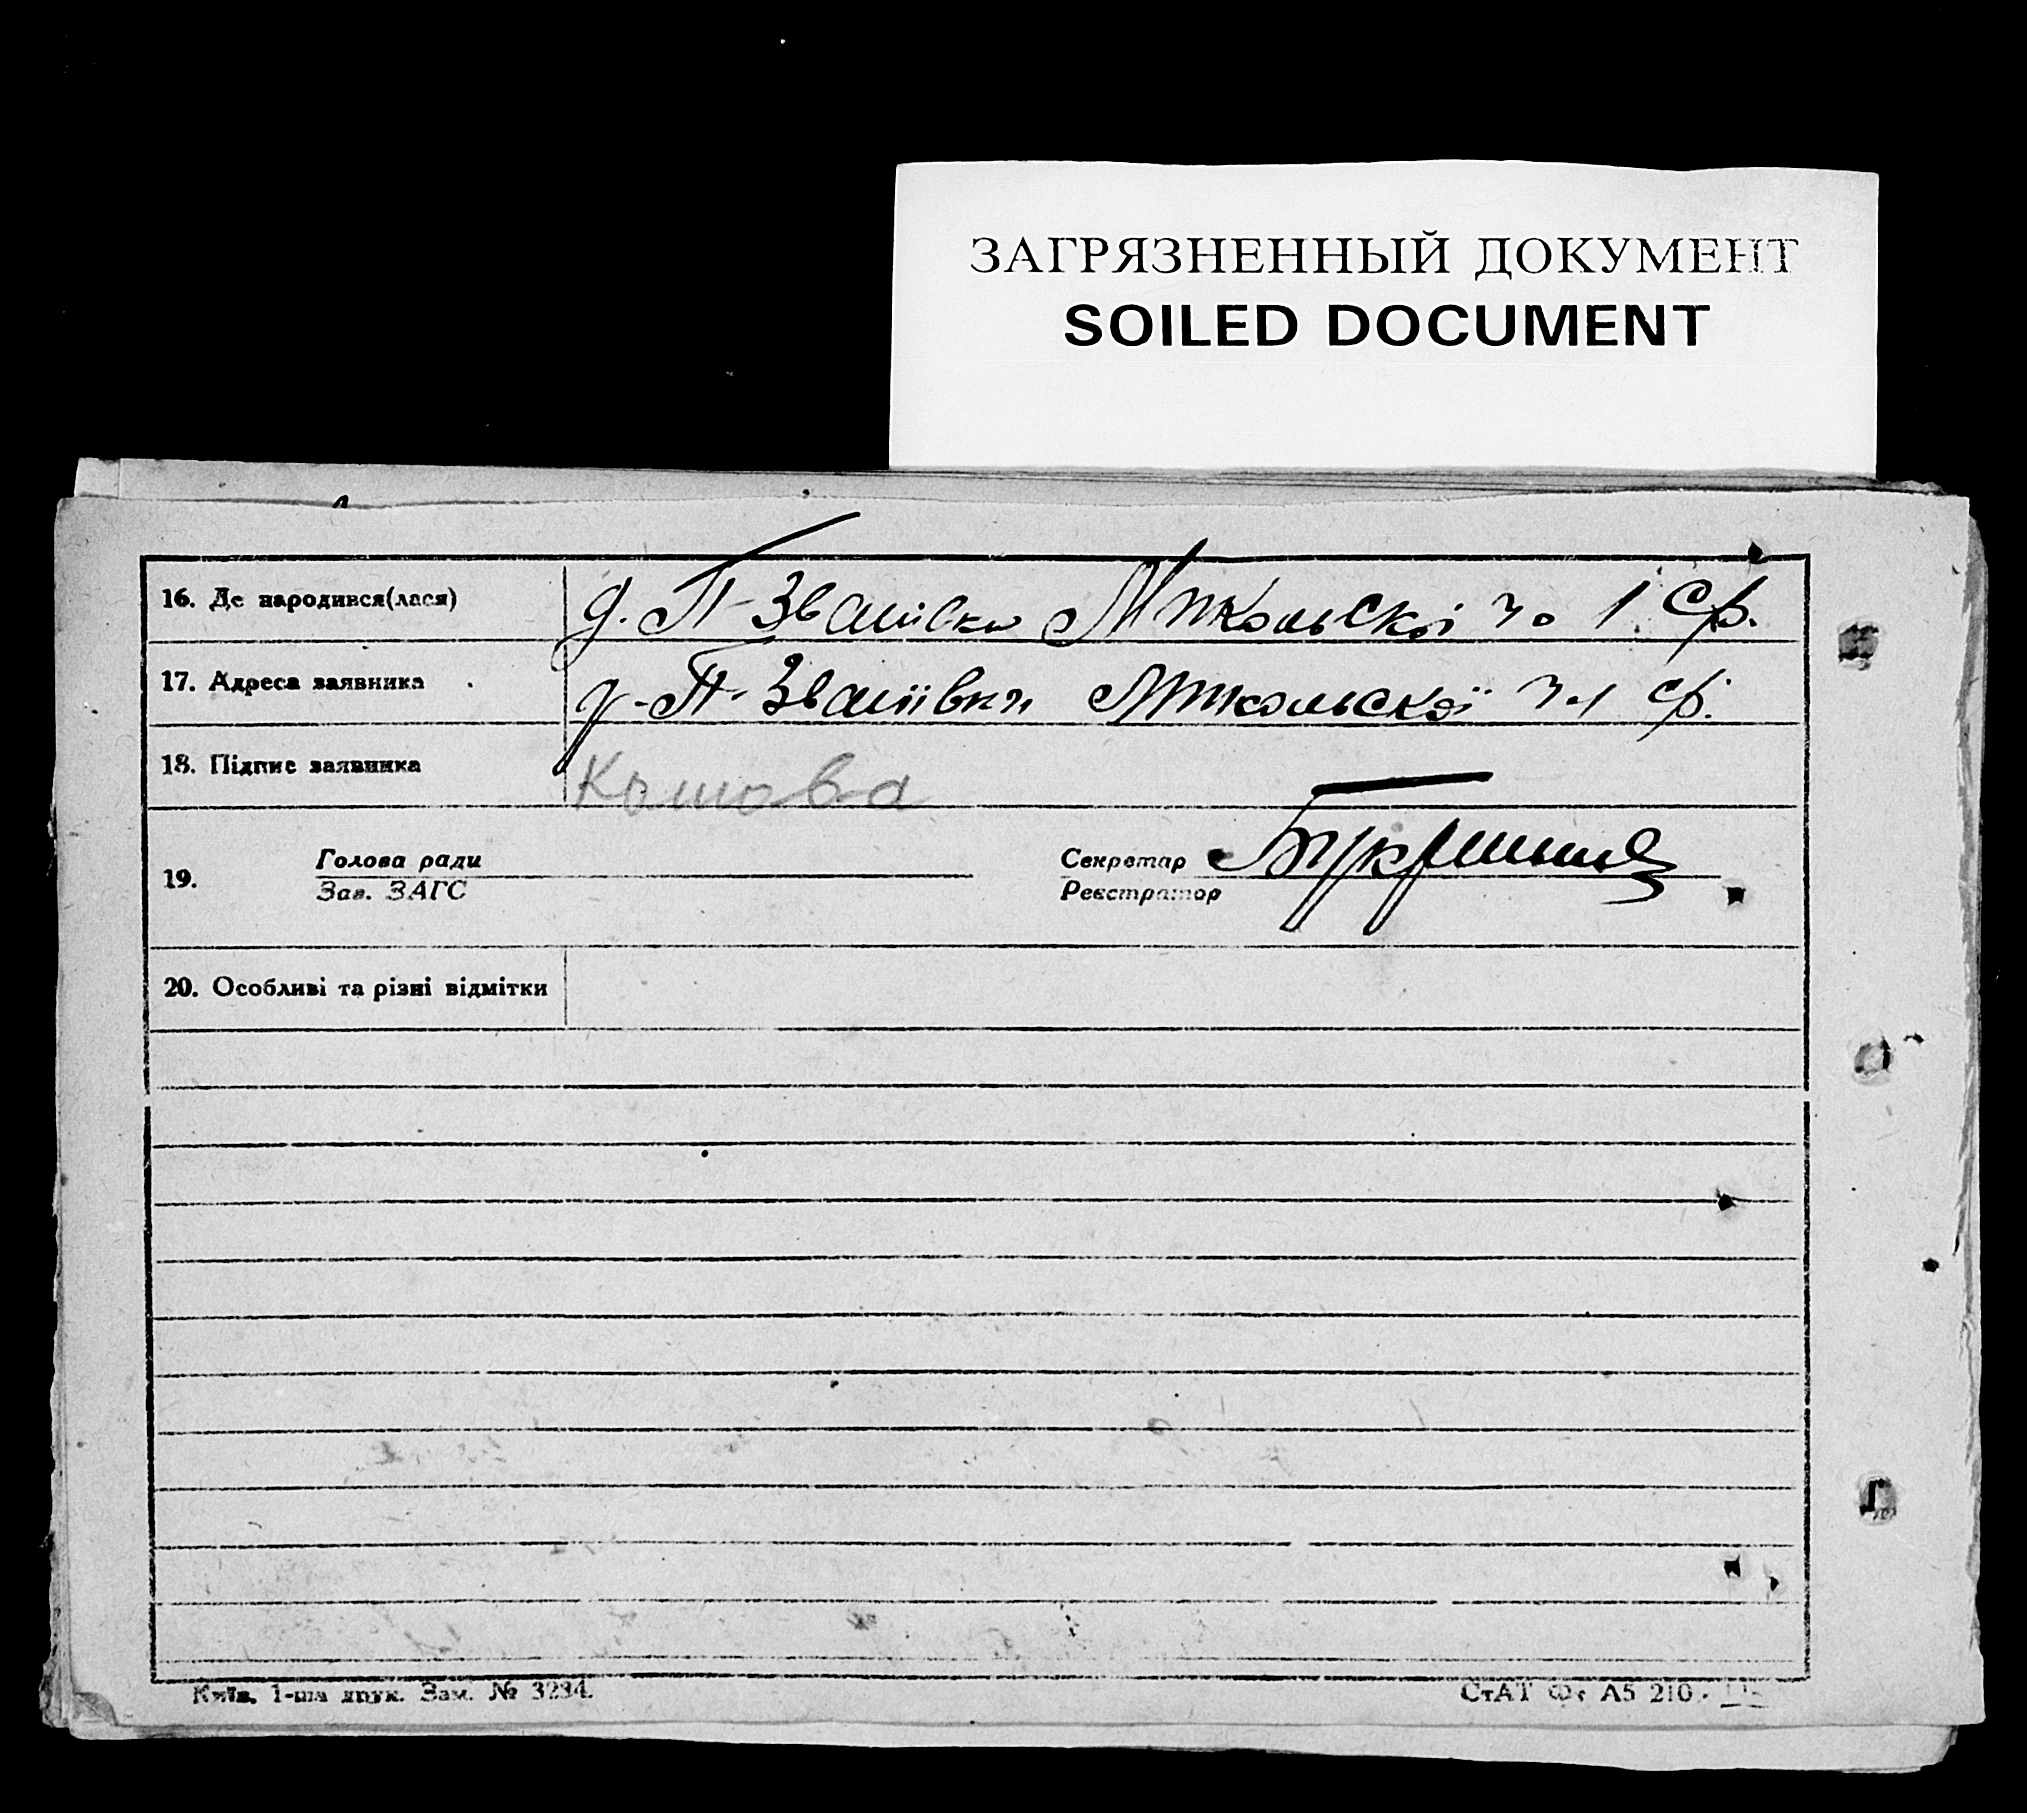 ЗАГРЯЗНЕННЫЙ ДОКУМЕНТ
SOILED DOCUMENT
16. Де народився(лася) д. П-Званівка Микольскої 1 ср.
17. Адреса заявника д. П-Званівка Микольскої ср.
18. Підпис заявника
19. Голова ради Секретар
Зав. ЗАГС Реєстратор
20. Особливі та різні відмітки
Київ. 1-ша друк. Зам. № 3234.
СтАТ Ф. А5 210